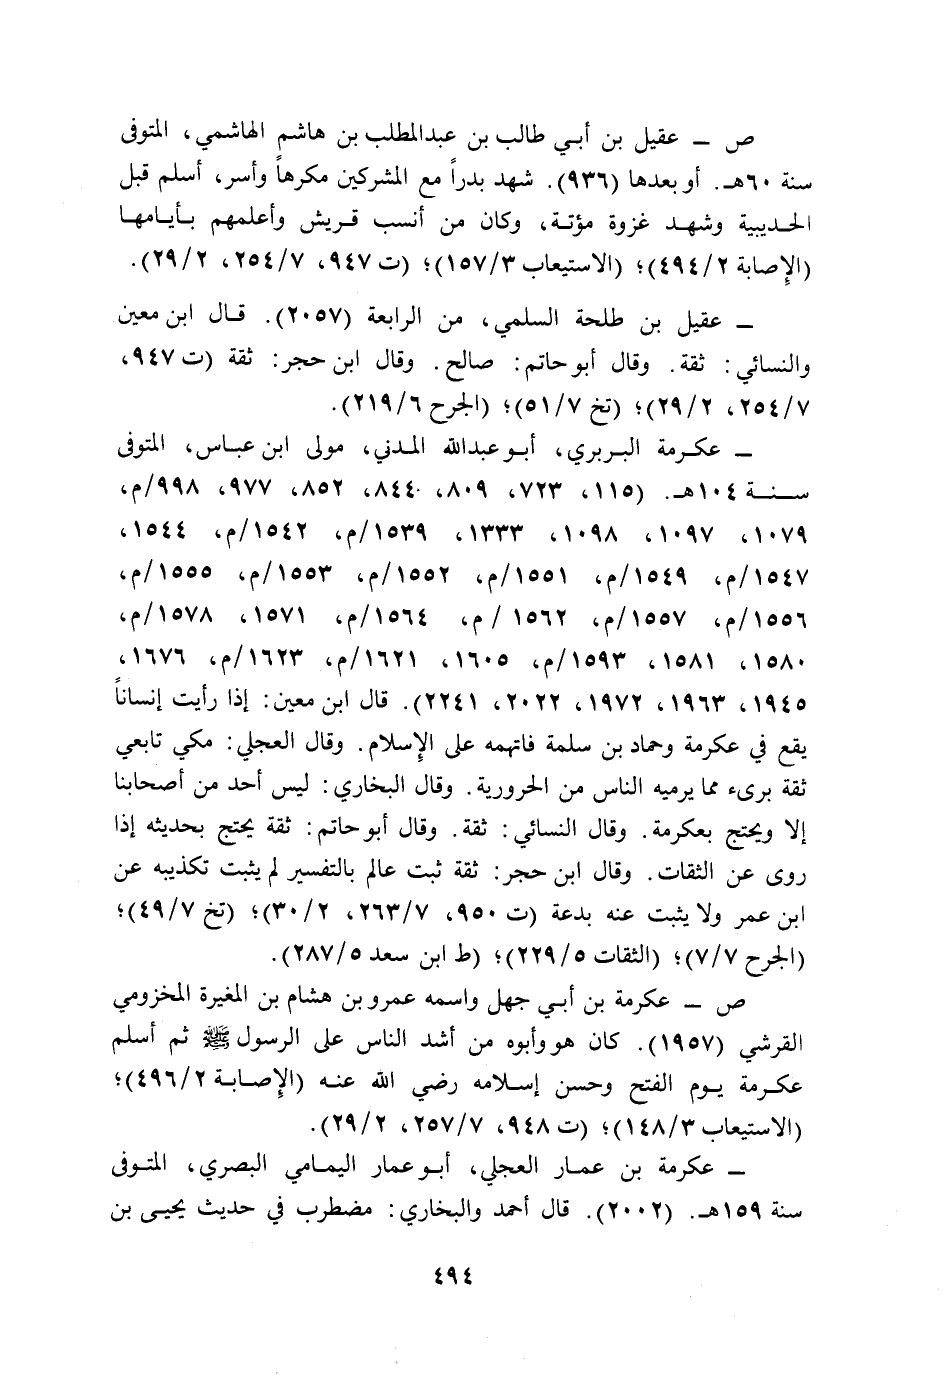 ص ــ عقيل بن أبـي طالب بن عبدالمطلب بن هاشم الهاشمي، المتوفى
سنة ٦٠هـ. أو بعدها (٩٣٦). شهد بدراً مع المشركين مكرهاً وأسر، أسلم قبل
الحـديبية وشهـد غزوة مؤتـة، وكان من أنسب قـريش وأعلمهم بـأيـامهـا
(الإصابة ٤٩٤/٢)؛ (الاستيعاب ١٥٧/٣)؛ (ت ٩٤٧، ٢٥٤/٧، ٢٩/٢).
ــ عقيل بن طلحة السلمي، من الرابعة (٢٠٥٧). قـال ابن معين
والنسائي: ثقة. وقال أبو حاتم: صالح. وقال ابن حجر: ثقة (ت ٩٤٧،
٢٥٤/٧، ٢٩/٢)؛ (تخ ٥١/٧)؛ (الجرح ٢١٩/٦).
ــ عكـرمة البـربري، أبـو عبدالله المـدني، مولى ابن عبـاس، المتوفى
سـنـة ١٠٤هـ. (١١٥، ٧٢٣، ٨٠٩، ٨٤٤، ٨٥٢، ٩٧٧، ٩٩٨/م،
١٠٧٩، ١٠٩٧، ١٠٩٨، ١٣٣٣، ١٥٣٩/م، ١٥٤٢/م، ١٥٤٤،
١٥٤٧/م، ١٥٤٩/م، ١٥٥١/م، ١٥٥٢/م، ١٥٥٣/م، ١٥٥٥/م،
١٥٥٦/م، ١٥٥٧/م، ١٥٦٢/م، ١٥٦٤/م، ١٥٧١، ١٥٧٨/م،
١٥٨٠، ١٥٨١، ١٥٩٣/م، ١٦٠٥، ١٦٢١/م، ١٦٢٣/م، ١٦٧٦،
١٩٤٥، ١٩٦٣، ١٩٧٢، ٢٠٢٢، ٢٢٤١). قال ابن معين: إذا رأيت إنساناً
يقع في عكرمة وحماد بن سلمة فاتهمه على الإسلام. وقال العجلي: مكي تابعي
ثقة برىء مما يرميه الناس من الحرورية. وقال البخاري: ليس أحد من أصحابنا
إلا ويحتج بعكرمة. وقال النسائي: ثقة. وقال أبو حاتم: ثقة يحتج بحديثه إذا
روى عن الثقات. وقال ابن حجر: ثقة ثبت عالم بالتفسير لم يثبت تكذيبه عن
ابن عمر ولا يثبت عنه بدعة (ت ٩٥٠، ٢٦٣/٧، ٣٠/٢)؛ (تخ ٤٩/٧)؛
(الجرح ٧/٧)؛ (الثقات ٢٢٩/٥)؛ (ط ابن سعد ٢٨٧/٥).
ص ــ عكرمة بن أبـي جهل واسمه عمرو بن هشام بن المغيرة المخزومي
القرشي (١٩٥٧). كان هو وأبوه من أشد الناس على الرسول ﷺ ثم أسلم
عكـرمة يـوم الفتح وحسن إسـلامه رضي الله عنـه (الإصابـة ٤٩٦/٢)؛
(الاستيعاب ١٤٨/٣)؛ (ت ٩٤٨، ٢٥٧/٧، ٢٩/٢).
ــ عكرمة بن عمـار العجلي، أبـو عمار اليمـامي البصري، المتـوفى
سنة ١٥٩هـ. (٢٠٠٢). قال أحمد والبخاري: مضطرب في حديث يحيـى بن
٤٩٤